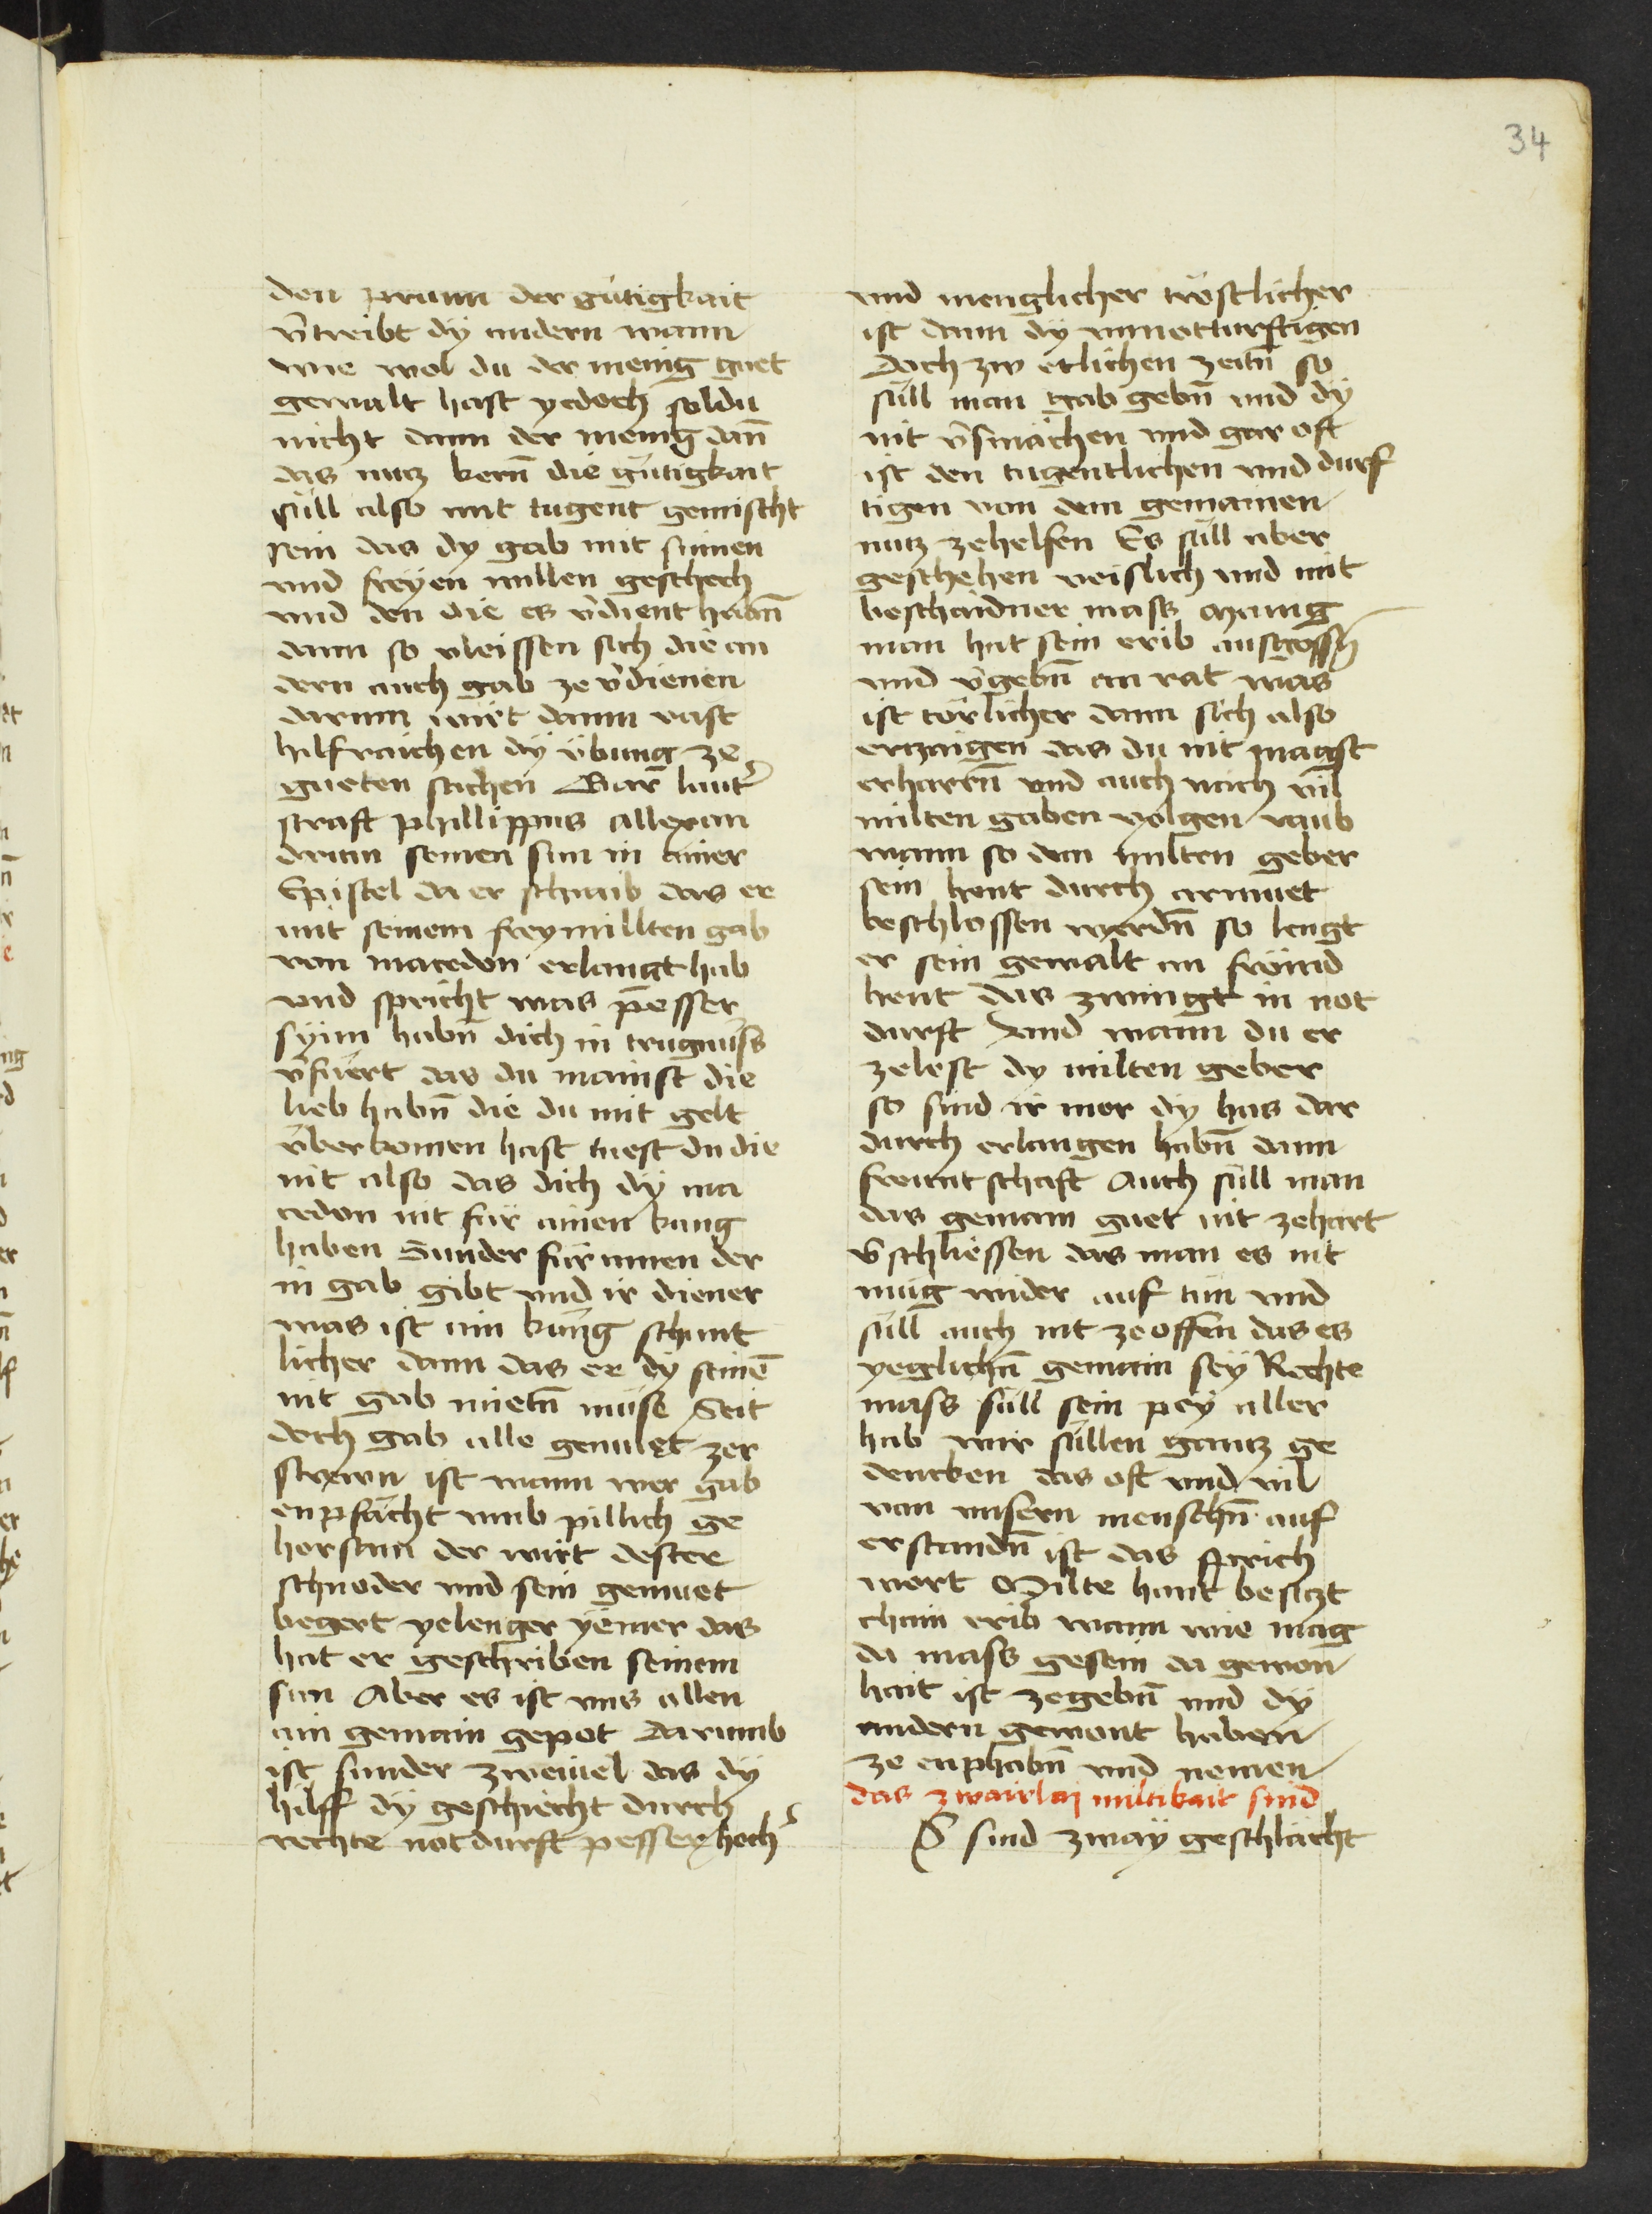 34
den prunn der gütigkait
v̄treibt dÿ andern wann
wie wol du der menig guet
gewalt hast yedoch soldu
nicht dann der menig dan̄
das nutz kern̄ die gütigkait
süll also mit tugent gemischt
sein das dy gab mit sinnen
vnd freyen willen geschech
vnd den die es v̄dient habn̄
dann so vleissen sich die an
dern auch gab ze v̄dienen
darum wirt dann vast
hilfraichen dÿ übung ze
gueten sachen Gar lauter
straft phillippus allexan
drum seinen sun in ainer
Epistel da er schraib das er
mit seinem freymillten gab
von macedon erlangt hab
vnd spricht was pesser
synn habn̄ dich in trugnuss
v̄füert das du mainst die
lieb habn̄ die du mit gelt
überkomen hast tuest du die
nit also das dich dÿ ma
cedon nit für ainen kung
haben Sunder für ainen der
in gab gibt vnd ir diener
was ist aim küng schant
licher dann das er dÿ seinē
nit gab mietn̄ müse Seit
doch gab alle gemuet zer
strewn ist wann wer gab
enpfächt vmb pillich ge
horsam der wirt dester
schnoder vnd sein gemuet
begert yelenger yemer das
hat er geschriben seinem
sun Aber es ist vns allen
ain gemain gepot darumb
ist sunder zweiuel das dÿ
hilff dÿ geschiecht durch
rechte notdurft pesser hoch
vnd menglicher tröstlicher
ist dann dÿ vnnotturftigen
Doch zw etlichen zeitn̄ so
süll man gab gebn̄ vnd dÿ
nit v̄smächen vnd gar oft
ist den tugentlichen vnd durf
tigen von dem gemainen
nutz zehelfen Es süll aber
geschehen veislich vnd mit
beschaidner mass Manig
man hat sein erib ausgossn̄
vnd v̄gebn̄ an rat was
ist törlicher dann sich also
erzaigen das du nit magst
erharrn̄ vnd auch nach vil
milten gaben volgen raub
wann so dem milten geber
sein hent durch armuet
beschlossen werdn̄ so lengt
er sein gewalt in frömd
hent das zwingt in not
durft Vnd wann du er
zelest dy milten geber
so sind ir mer dy has dar
durch erlangen habn̄ dann
freuntschaft Auch süll man
das gemain guet nit zehart
v̄schliessen das man es nit
müg wider auf tun vnd
süll auch nit ze offen das es
yeglichn̄ gemain seÿ Rechte
mass süll sein pey aller
hab wir süllen gantz ge
dencken das oft vnd vil
von vnsern menschn̄ auf
erstandn̄ ist das sprich
wort Milte hant besitzt
chain erib wann wie mag
da mass gesein da gewon
hait ist zegebn̄ vnd dÿ
andern gewont haben
ze enphahn̄ vnd nemen
das zwairlaj miltikait sind
S sind zwaÿ geschlächt